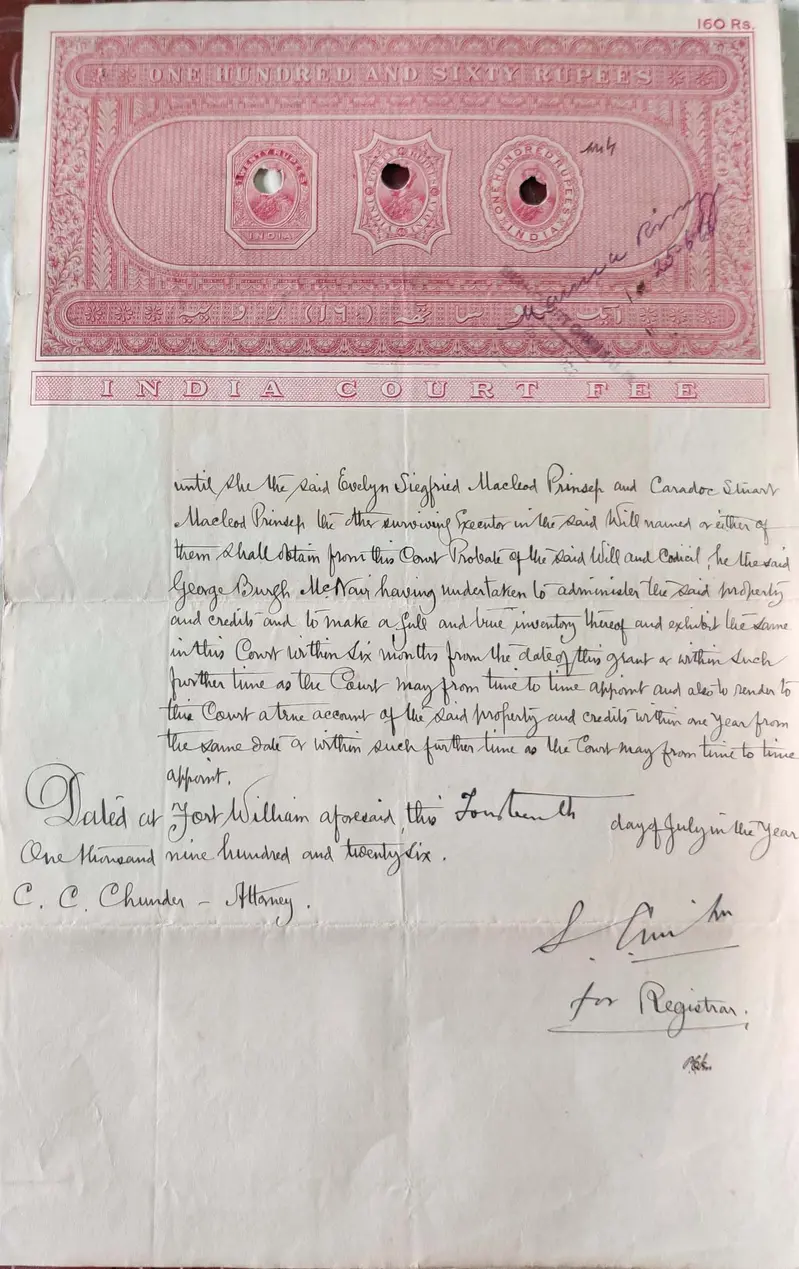 160 Rs.
ONE HUNDRED AND SIXTY RUPEES
TWENTY RUPEES
INDIA
FORTY RUPEES
INDIA
ONE HUNDRED RUPEES
INDIA
ایک سو ساٹھ (۱۶۰) روپیہ
INDIA COURT FEE
until she the said Evelyn Siegfried Macleod Prinsep and Caradoc Stuart
Macleod Prinsep the other surviving Executor in the said Will named or either of
them shall obtain from this Court Probate of the said Will and Codicil, he the said
George Burgh McNair having undertaken to administer the said property
and credits and to make a full and true inventory thereof and exhibit the same
in this Court within six months from the date of this grant or within such
further time as the Court may from time to time appoint and also to render to
this Court a true account of the said property and credits within one year from
the same date or within such further time as the Court may from time to time
appoint.
Dated at Fort William aforesaid, this Fourteenth day of July in the Year
One thousand nine hundred and twenty six.
C. C. Chunder - Attorney.
for Registrar.